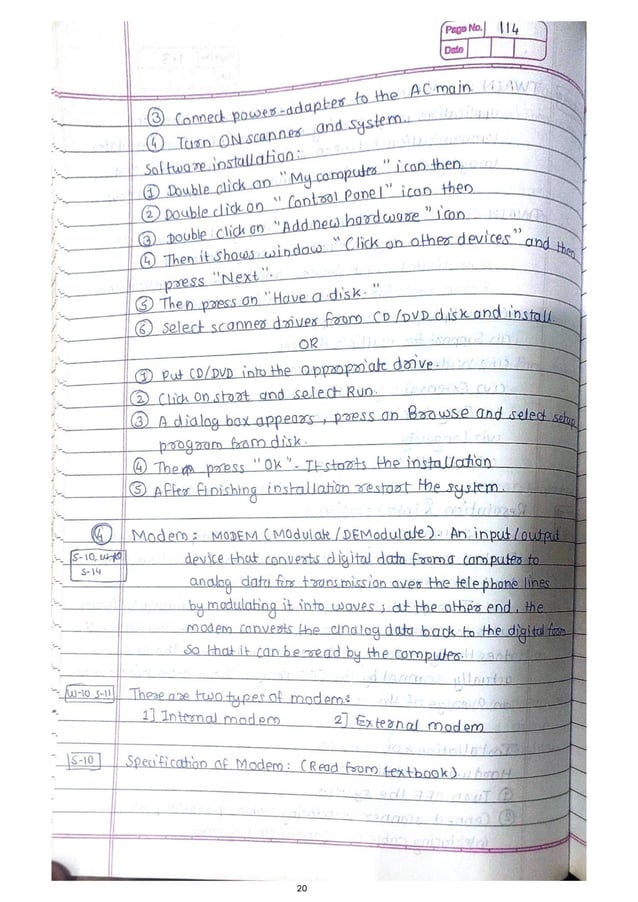 Page No. 114
Date
③ Connect power-adapter to the AC main
④ Turn ON scanner and system.
Software installation:
① Double click on "My computer" ican then
② Double click on "Control Panel" ican then
③ Double click on "Add new hardware" ican
④ Then it shows window "Click on other devices" and then
press "Next".
⑤ Then press on "Have a disk."
⑥ Select scanner driver from CD/DVD disk and install
OR
① Put CD/DVD into the appropriate drive.
② Click on start and select Run.
③ A dialog box appears, press on Browse and select setup
program from disk.
④ Then press "Ok". It starts the installation
⑤ After finishing installation restart the system.
④ Modem: MODEM (MOdulate/DEModulate). An input/output
S-10, W-10
S-14
device that converts digital data from a computer to
analog data for transmission over the telephone lines
by modulating it into waves; at the other end, the
modem converts the analog data back to the digital form
so that it can be read by the computer.
W-10 S-11 There are two types of modem:
1] Internal modem 2] External modem
S-10 Specification of Modem: (Read from textbook)
20